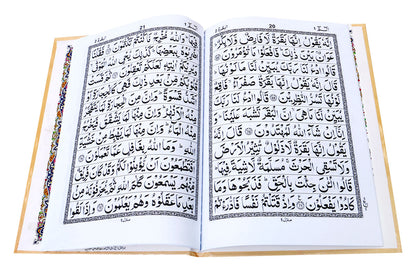 20
اِنَّهٗ يَقُوْلُ اِنَّهَا بَقَرَةٌ لَّا فَارِضٌ وَّلَا بِكْرٌ
عَوَانٌۢ بَيْنَ ذٰلِكَ فَافْعَلُوْا مَا تُؤْمَرُوْنَ قَالُوا
ادْعُ لَنَا رَبَّكَ يُبَيِّنْ لَّنَا مَا لَوْنُهَا قَالَ
اِنَّهٗ يَقُوْلُ اِنَّهَا بَقَرَةٌ صَفْرَآءُ فَاقِعٌ
لَّوْنُهَا تَسُرُّ النّٰظِرِيْنَ قَالُوا ادْعُ لَنَا رَبَّكَ
يُبَيِّنْ لَّنَا مَا هِيَ اِنَّ الْبَقَرَ تَشٰبَهَ عَلَيْنَا وَاِنَّآ
اِنْ شَآءَ اللّٰهُ لَمُهْتَدُوْنَ قَالَ اِنَّهٗ
يَقُوْلُ اِنَّهَا بَقَرَةٌ لَّا ذَلُوْلٌ تُثِيْرُ الْاَرْضَ
وَلَا تَسْقِي الْحَرْثَ مُسَلَّمَةٌ لَّا شِيَةَ فِيْهَا
قَالُوا الْـٰٔنَ جِئْتَ بِالْحَقِّ فَذَبَحُوْهَا وَمَا
كَادُوْا يَفْعَلُوْنَ وَاِذْ قَتَلْتُمْ نَفْسًا فَادّٰرَءْتُمْ
21
فِيْهَا وَاللّٰهُ مُخْرِجٌ مَّا كُنْتُمْ تَكْتُمُوْنَ فَقُلْنَا
اضْرِبُوْهُ بِبَعْضِهَا كَذٰلِكَ يُحْيِ اللّٰهُ الْمَوْتٰى
وَيُرِيْكُمْ اٰيٰتِهٖ لَعَلَّكُمْ تَعْقِلُوْنَ ثُمَّ قَسَتْ
قُلُوْبُكُمْ مِّنْۢ بَعْدِ ذٰلِكَ فَهِيَ كَالْحِجَارَةِ اَوْ
اَشَدُّ قَسْوَةً وَاِنَّ مِنَ الْحِجَارَةِ لَمَا يَتَفَجَّرُ
مِنْهُ الْاَنْهٰرُ وَاِنَّ مِنْهَا لَمَا يَشَّقَّقُ فَيَخْرُجُ
مِنْهُ الْمَآءُ وَاِنَّ مِنْهَا لَمَا يَهْبِطُ مِنْ خَشْيَةِ
اللّٰهِ وَمَا اللّٰهُ بِغَافِلٍ عَمَّا تَعْمَلُوْنَ
اَفَتَطْمَعُوْنَ اَنْ يُّؤْمِنُوْا لَكُمْ وَقَدْ كَانَ فَرِيْقٌ
مِّنْهُمْ يَسْمَعُوْنَ كَلٰمَ اللّٰهِ ثُمَّ يُحَرِّفُوْنَهٗ مِنْۢ
بَعْدِ مَا عَقَلُوْهُ وَهُمْ يَعْلَمُوْنَ وَاِذَا لَقُوا